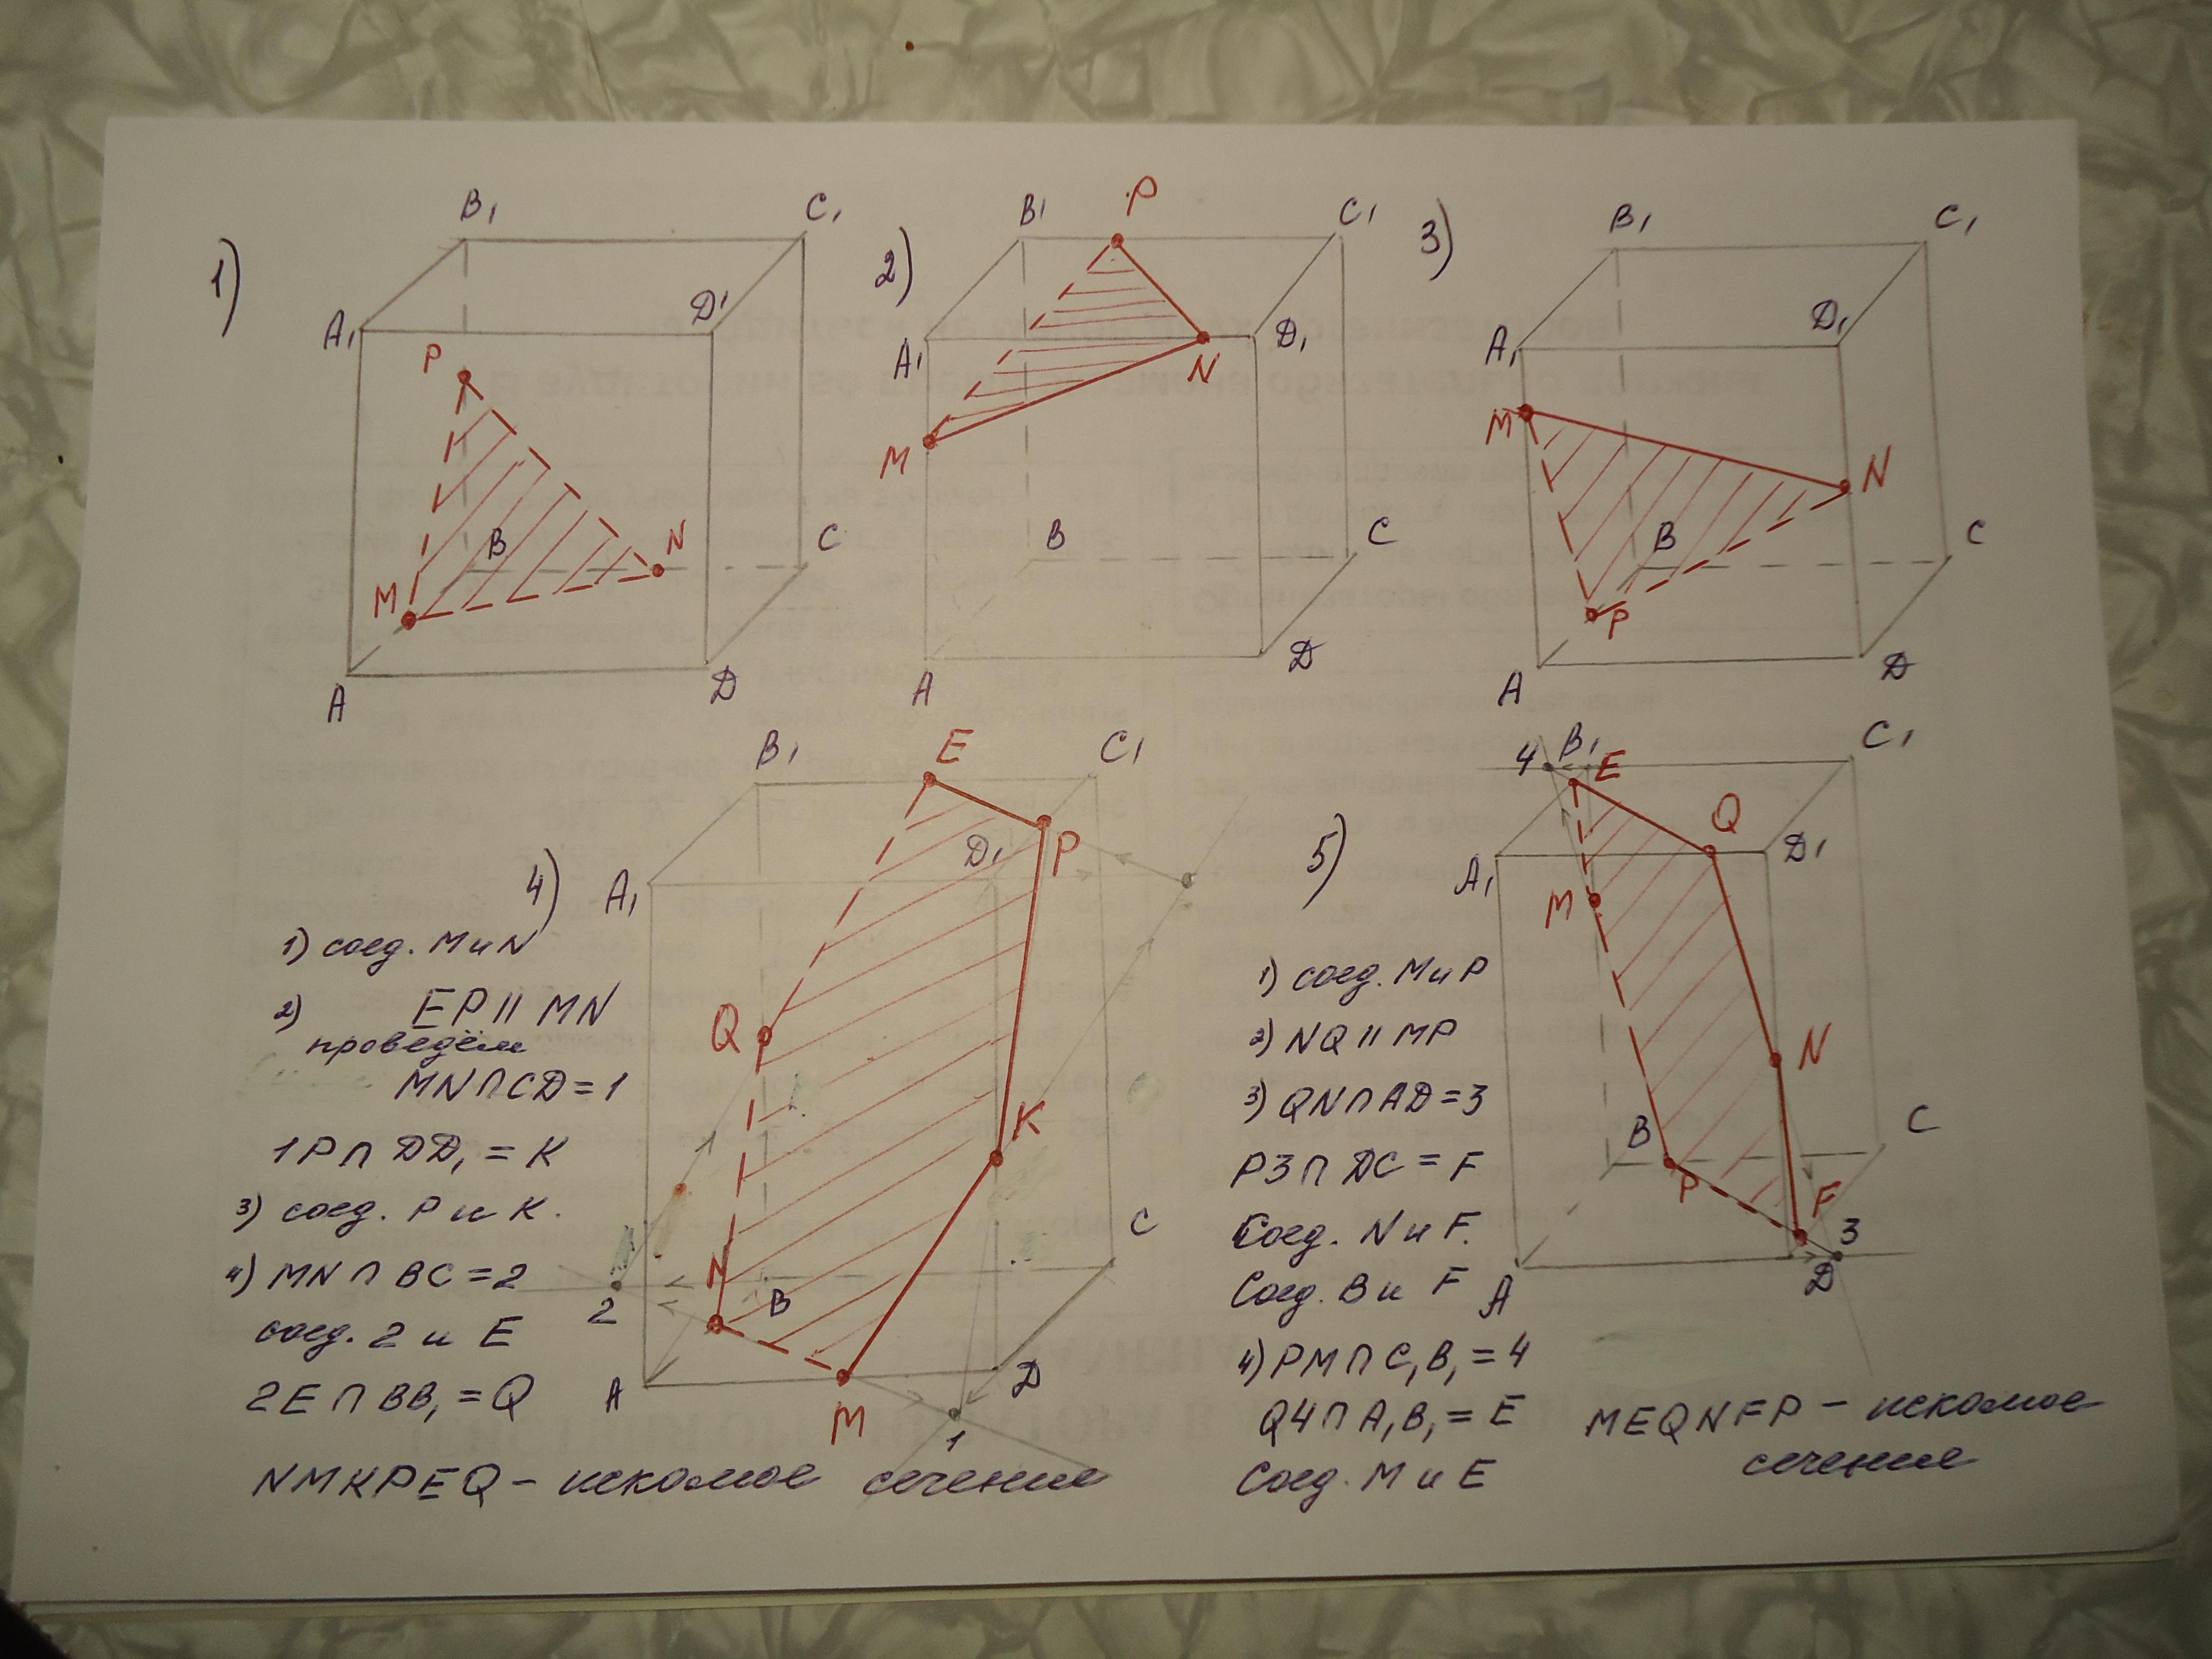 1)
B₁
C₁
A₁
D₁
P
B
N
C
M
A
D
2)
B₁
P
C₁
A₁
D₁
N
M
B
C
A
D
3)
B₁
C₁
A₁
D₁
M
N
B
C
P
A
D
4)
B₁
E
C₁
A₁
D₁
P
Q
K
N
C
2
B
A
M
D
1
1) соед. M и N
2) EP || MN
проведём
MN∩CD=1
1P∩DD₁=K
3) соед. P и K.
4) MN∩BC=2
соед. 2 и E
2E∩BB₁=Q
NMKPEQ – искомое сечение
5)
4
B₁
E
C₁
Q
A₁
D₁
M
N
B
C
P
F
3
A
D
1) соед. M и P
2) NQ || MP
3) QN∩AD=3
P3∩DC=F
Соед. N и F.
Соед. B и F
4) PM∩C₁B₁=4
Q4∩A₁B₁=E
Соед. M и E
MEQNFP – искомое
сечение